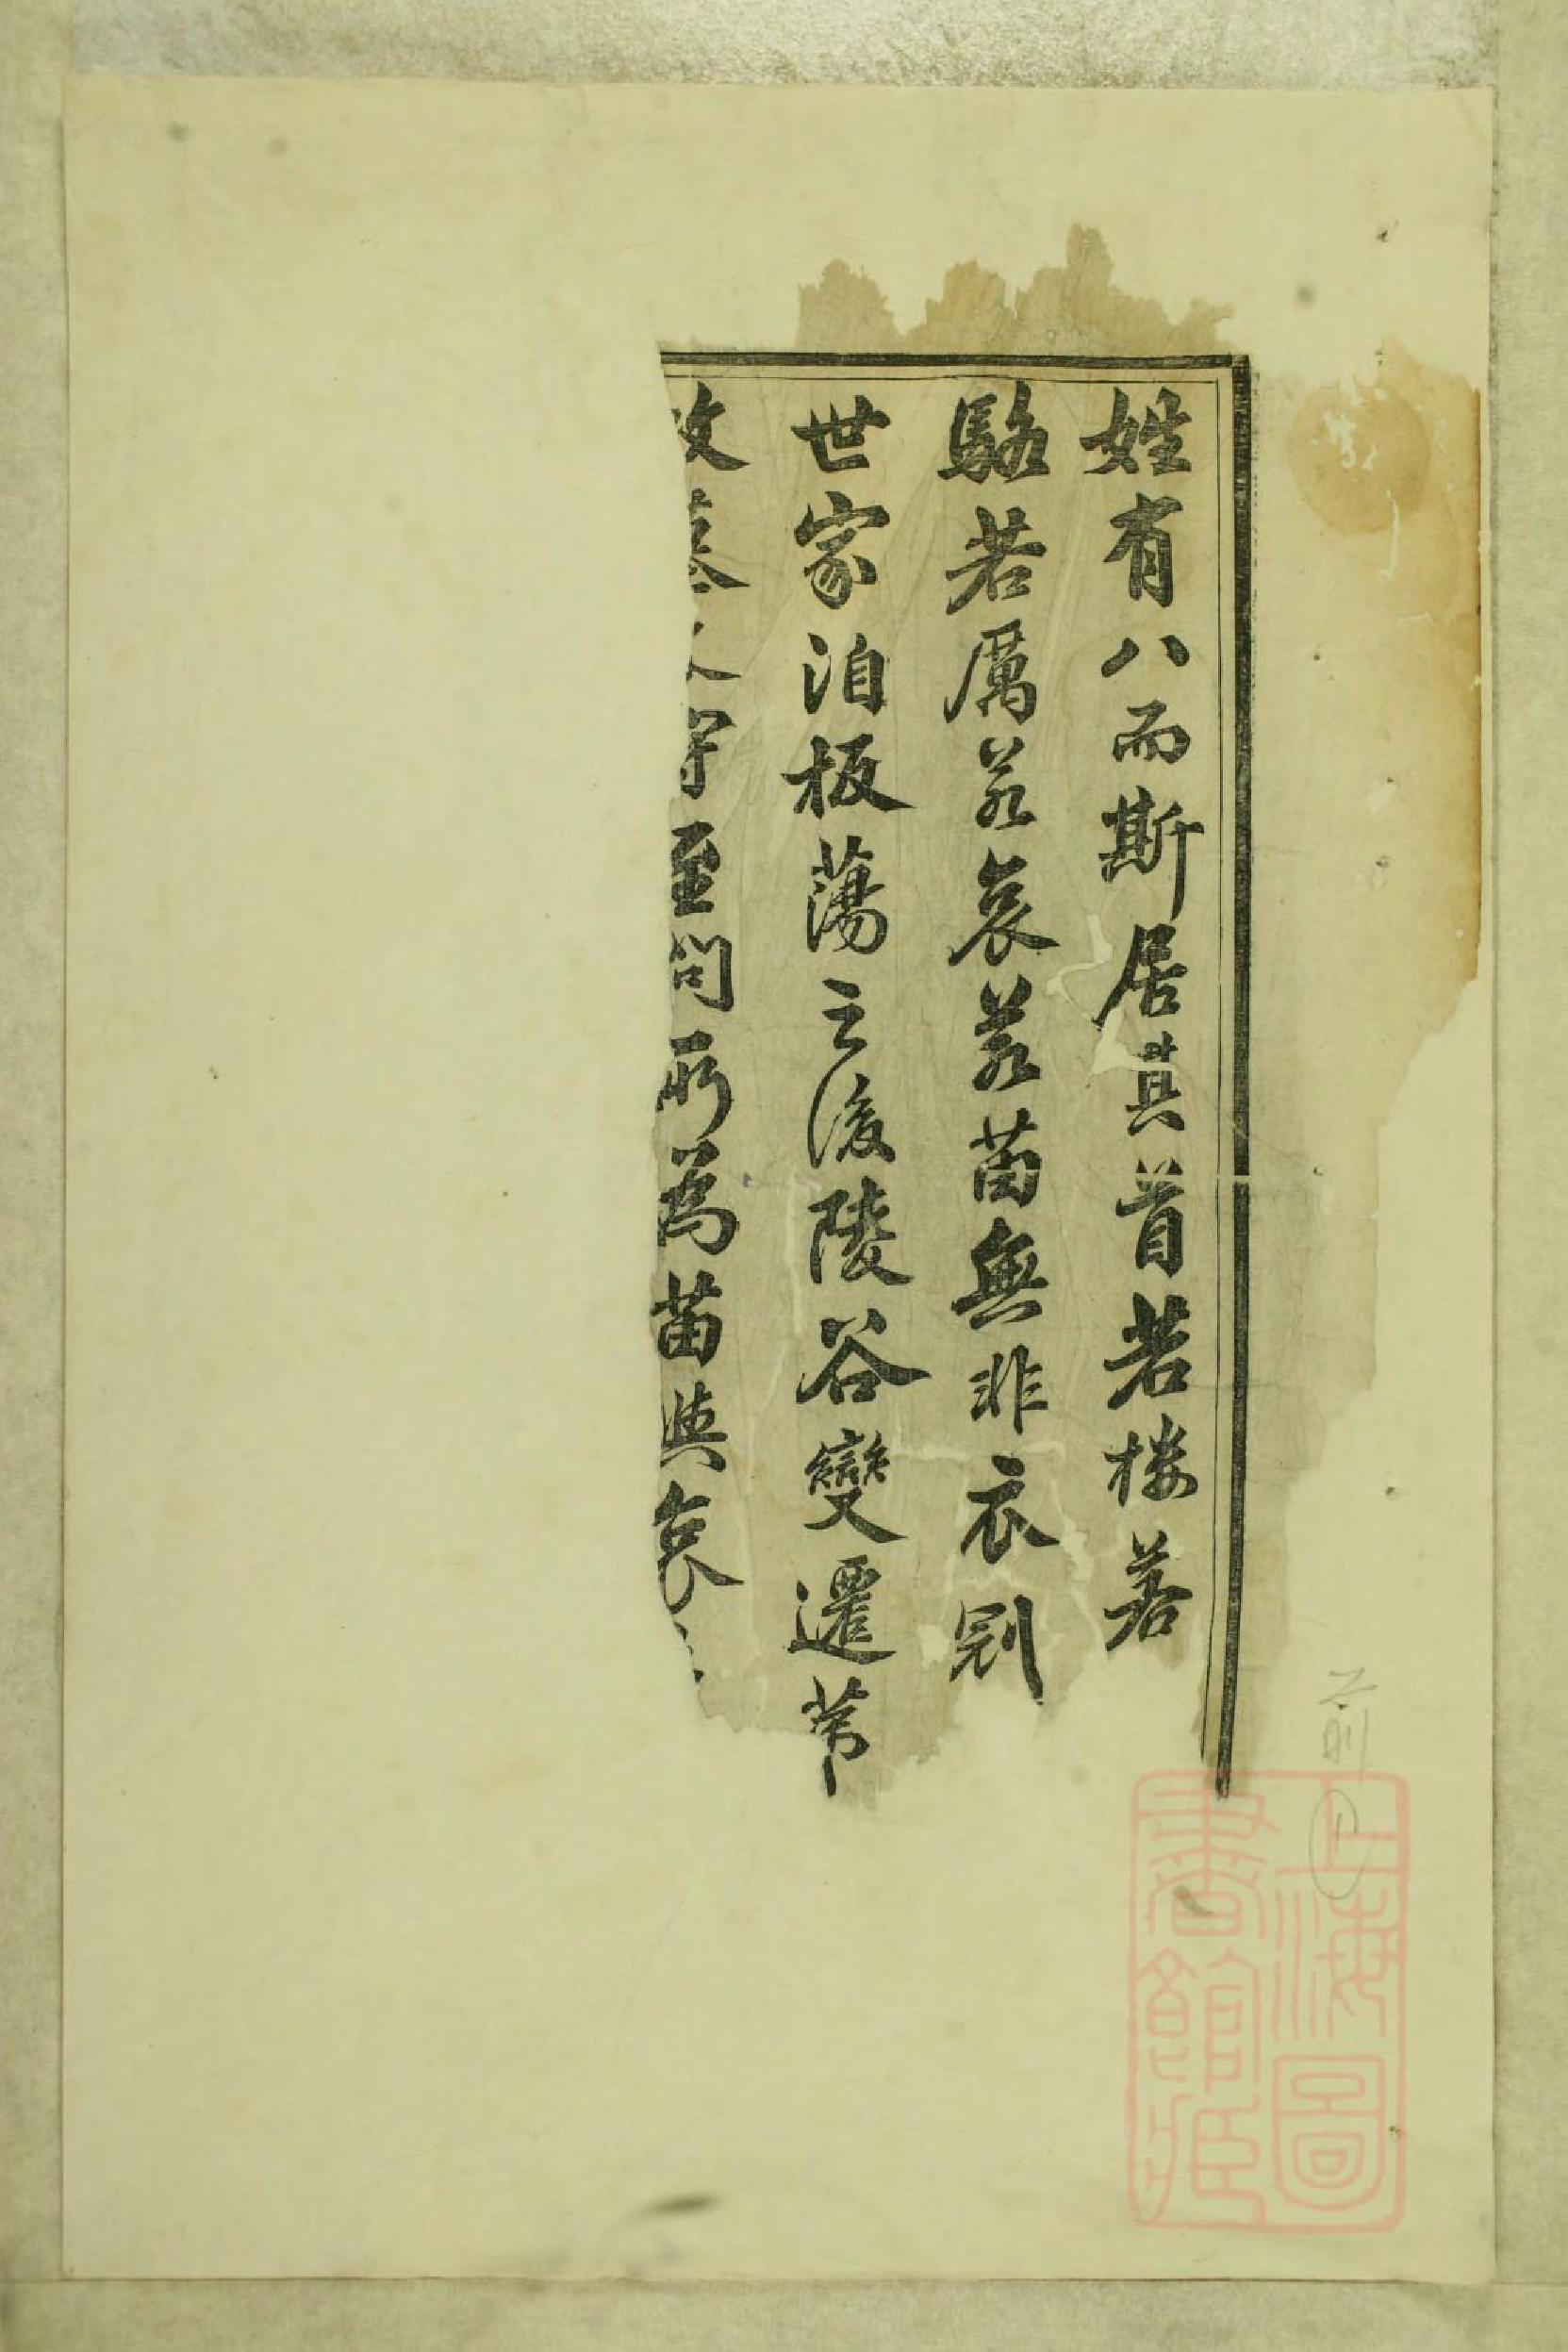 姓有八而斯居其首若樓若
駱若厲若袁若苗無非衣冠
世家洎板蕩之後陵谷變遷苐
至問所為苗與袁
前
上海圖
書館藏